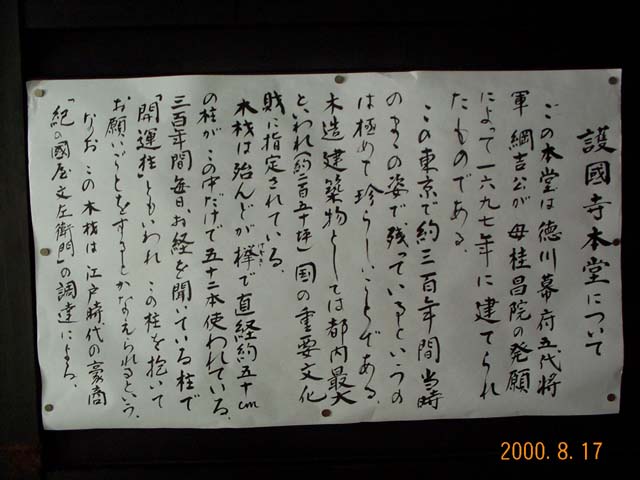 護國寺本堂について
この本堂は徳川幕府五代将
軍綱吉公が母桂昌院の発願
によって一六九七年に建てられ
たものである。
この東京で約三百年間当時
のまゝの姿で残っているというの
は極めて珍らしいことである。
木造建築物としては都内最大
といわれ(約二百五十坪)国の重要文化
財に指定されている。
木材は殆んどが欅で直経約五十cm
けやき
の柱がこの中だけで五十二本使われている。
三百年間毎日、お経を聞いている柱で
「開運柱」ともいわれこの柱を抱いて
お願いごとをするとかなえられるという。
なおこの木材は江戸時代の豪商
「紀の國屋文左衛門」の調達による。
2000.8.17